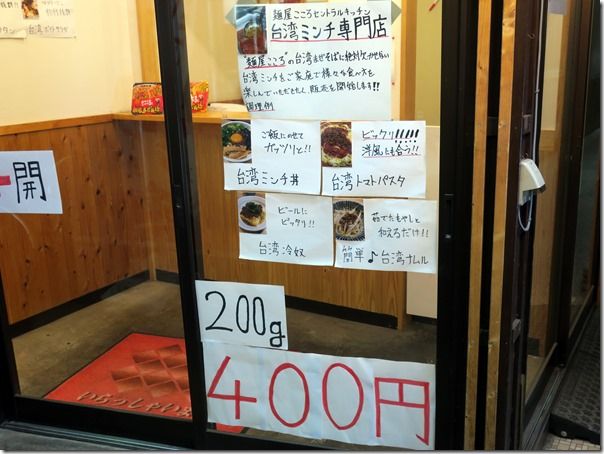 麺屋こころセントラルキッチン
台湾ミンチ専門店
"麺屋こころ"の台湾まぜそばに絶対欠かせない
台湾ミンチをご家庭で様々な食べ方を
楽しんでいただきたく、販売を開始します!!
調理例
ご飯にのせて
ガッツリと!!
台湾ミンチ丼
ビックリ!!!!!
洋風にも合う!!
台湾トマトパスタ
ビールに
ピッタリ!!
台湾冷奴
茹でたもやしと
和えるだけ!!
簡単♪台湾ナムル
開
200g
400円
いらっしゃいませ